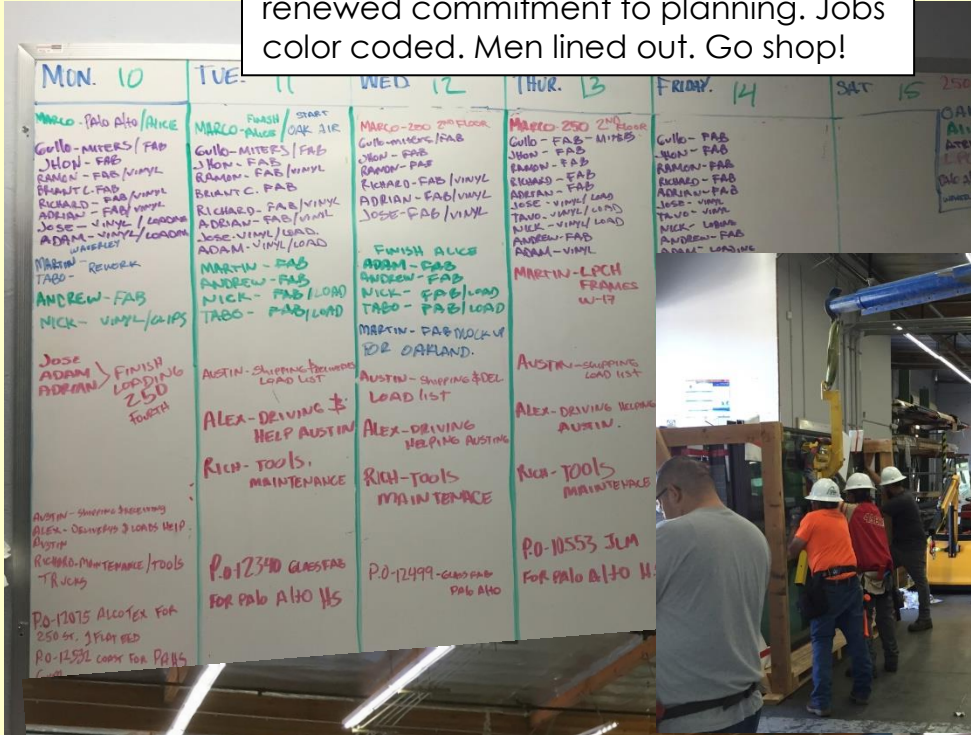 renewed commitment to planning. Jobs
color coded. Men lined out. Go shop!
MON. 10
MARCO - PALO Alto / ALICE
Gullo - MITERS / FAB
JHON - FAB
RAMON - FAB/VINYL
BRIANT C. FAB
RICHARD - FAB/VINYL
ADRIAN - FAB/VINYL
JOSE - VINYL / LOADING
ADAM - VINYL/LOADING
WAVERLEY
MARTIN - REWORK
TABO -
ANDREW - FAB
NICK - VINYL/CLIPS
JOSE
ADAM
ADRIAN
FINISH
LOADING
250
FOURTH
AUSTIN - SHIPPING & RECEIVING
ALEX - DELIVERYS & LOADS HELP
AUSTIN
RICHARD - MAINTENANCE / TOOLS
TRUCKS
P.O-12075 ALCOTEX FOR
250 ST. 1 FLAT BED
P.O-12532 COAST FOR PAHS
TUE. 11
MARCO - FINISH ALICE / START OAK AIR
Gullo - MITERS / FAB
JHON - FAB
RAMON - FAB/VINYL
BRIANT C. FAB
RICHARD - FAB/VINYL
ADRIAN - FAB/VINYL
JOSE - VINYL/LOAD.
ADAM - VINYL/LOAD
MARTIN - FAB
ANDREW - FAB
NICK - FAB/LOAD
TABO - FAB/LOAD
AUSTIN - SHIPPING & DELIVERIES
LOAD LIST
ALEX - DRIVING &
HELP AUSTIN
RICH - TOOLS.
MAINTENANCE
P.O-12340 GLASSFAB
FOR PALO ALTO HS
WED 12
MARCO - 250 2ND FLOOR
Gullo - MITERS / FAB
JHON - FAB
RAMON - FAB
RICHARD - FAB/VINYL
ADRIAN - FAB/VINYL
JOSE - FAB/VINYL
FINISH ALICE
ADAM - FAB
ANDREW - FAB
NICK - FAB/LOAD
TABO - FAB/LOAD
MARTIN - FAB MOCK UP
FOR OAKLAND.
AUSTIN - SHIPPING & DEL
LOAD LIST
ALEX - DRIVING
HELPING AUSTING
RICH - TOOLS
MAINTENACE
P.O-12499 - GLASSFAB
PALO ALTO
THUR. 13
MARCO - 250 2ND FLOOR
Gullo - FAB - MITERS
JHON - FAB
RAMON - FAB
RICHARD - FAB
ADRIAN - FAB
JOSE - VINYL / LOAD
TAVO - VINYL / LOAD
NICK - VINYL / LOAD
ANDREW - FAB
ADAM - VINYL
MARTIN - LPCH
FRAMES
W-17
AUSTIN - SHIPPING
LOAD LIST
ALEX - DRIVING HELPING
AUSTIN.
RICH - TOOLS
MAINTENACE
P.O-10553 JLM
FOR PALO ALTO H
FRIDAY. 14
Gullo - FAB
JHON - FAB
RAMON - FAB
RICHARD - FAB
ADRIAN - FAB
JOSE - VINYL
TAVO - VINYL
NICK - LOADING
ANDREW - FAB
ADAM - LOADING
SAT 15
250
OAK